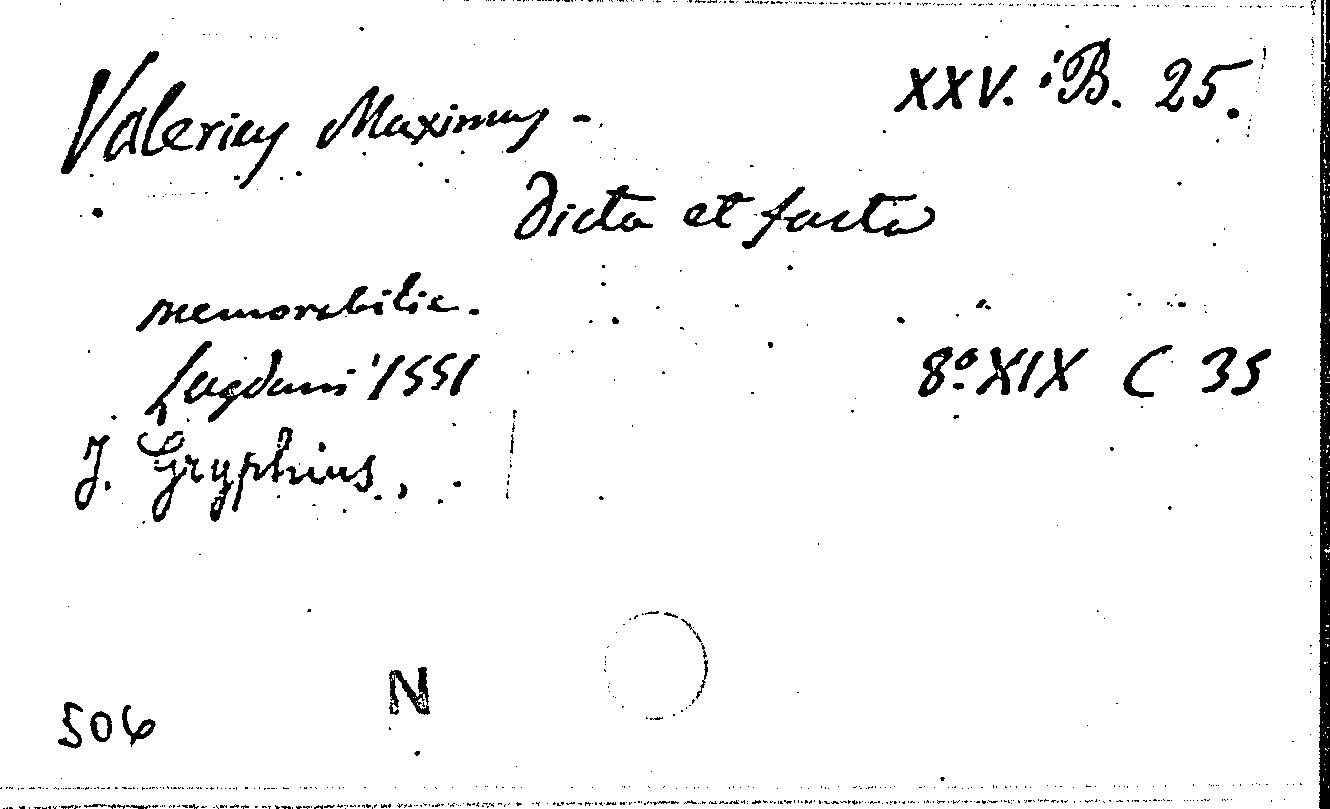 Valerius Maximus - XXV. B. 25.
Dicta et facta
memorabilia.
Lugduni 1551 8º XIX C 35
J. Gryphius,
N
506